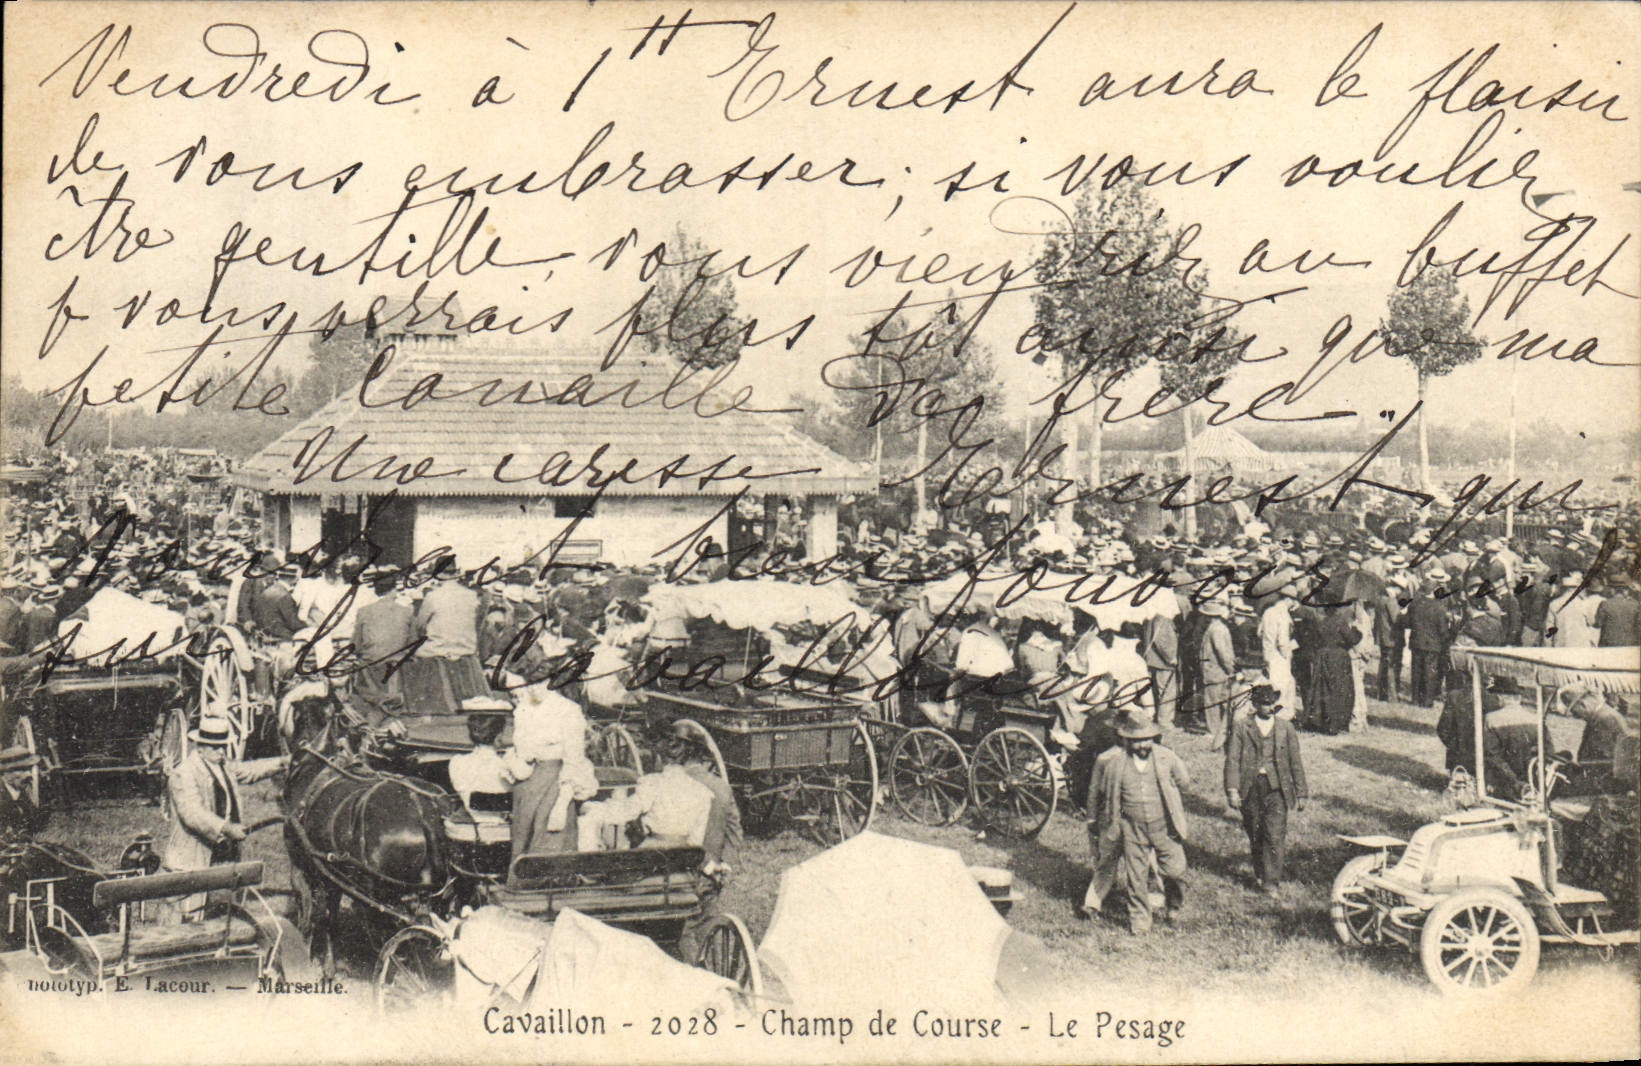 Vendredi à 1 H Ernest aura le plaisir
de vous embrasser; si vous vouliez
être gentille, vous viendriez au buffet
je vous verrais plus tôt ainsi que ma
petite Canaille de frère.
Une caresse Ernest qui
voudrait bien pouvoir ...!
sur les Cavaillonnais
Phototyp. E. Lacour. — Marseille.
Cavaillon - 2028 - Champ de Course - Le Pesage